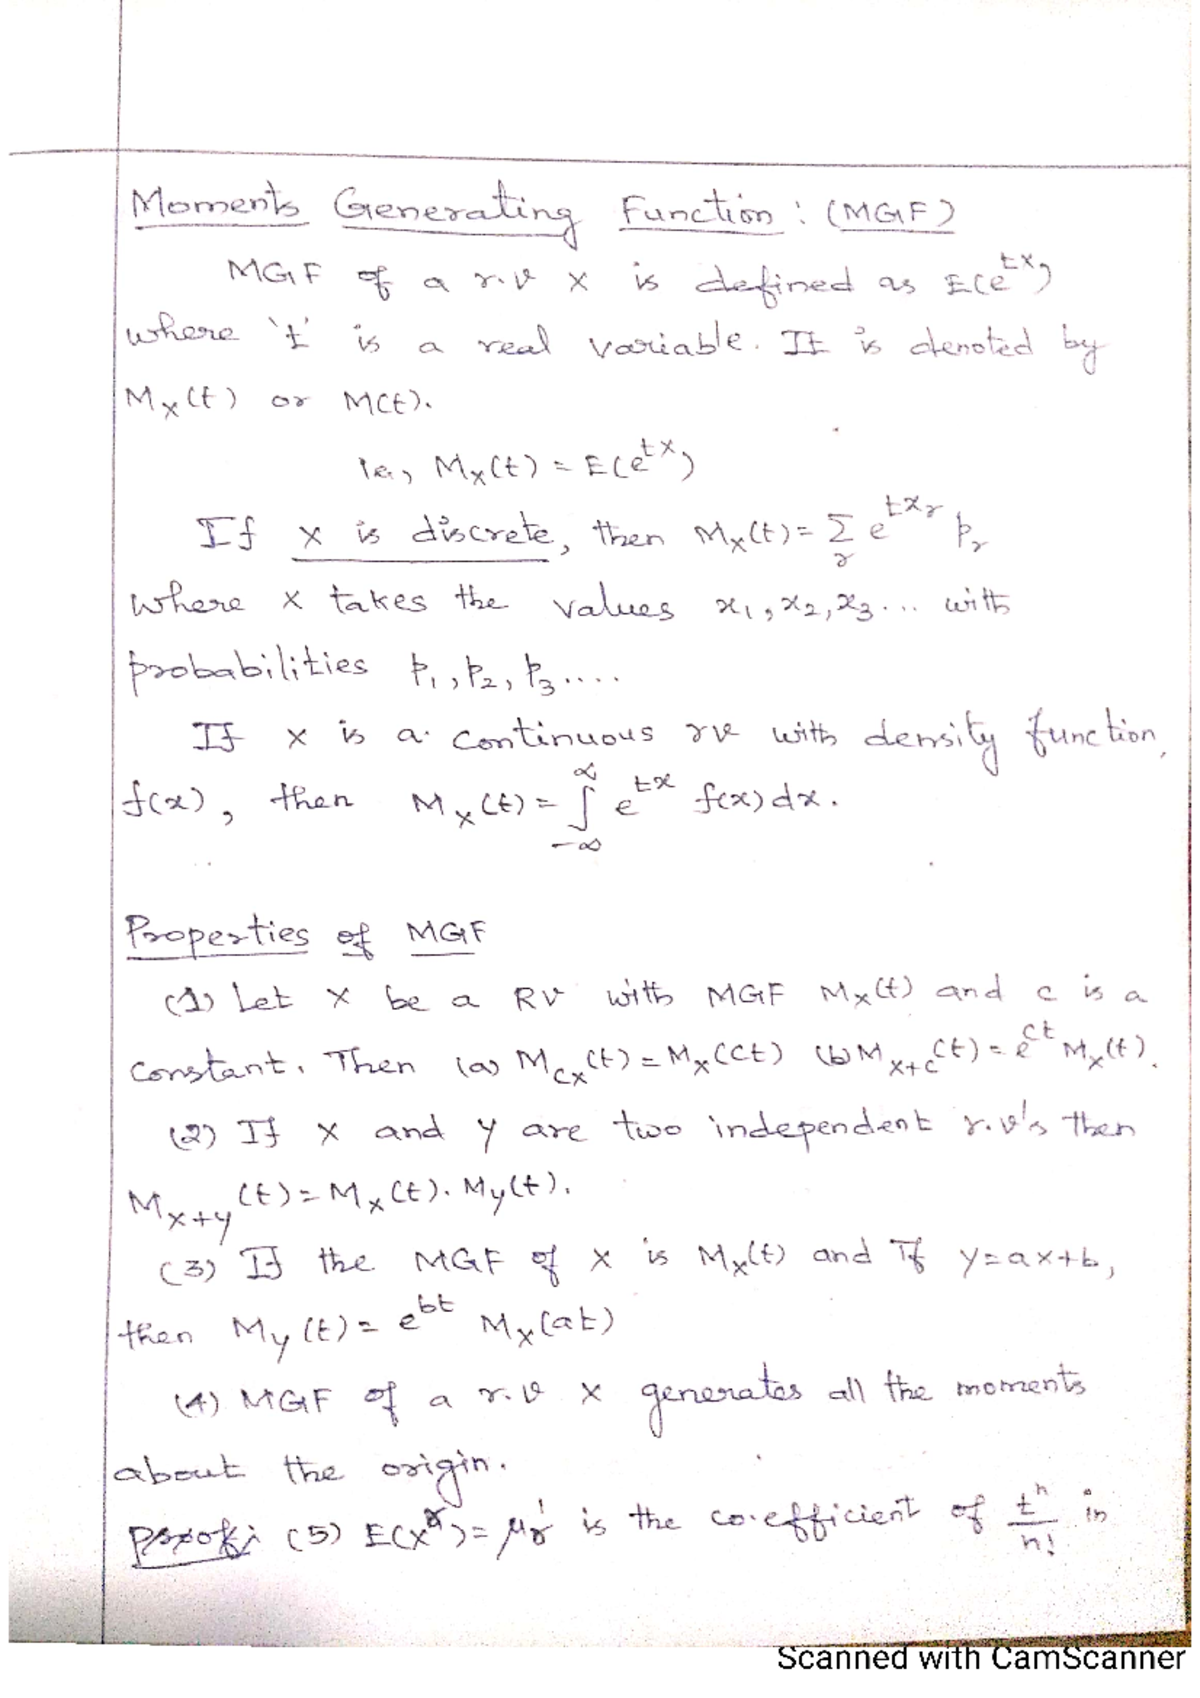 Moments Generating Function : (MGF)
MGF of a r.v X is defined as E(e^{tX})
where 't' is a real variable. It is denoted by
M_X(t) or M(t).
ie., M_X(t) = E(e^{tX})
If X is discrete, then M_X(t) = Σ_r e^{tx_r} p_r
where X takes the values x_1, x_2, x_3... with
probabilities p_1, p_2, p_3....
If X is a continuous rv with density function
f(x), then M_X(t) = ∫_{-∞}^{∞} e^{tx} f(x) dx.
Properties of MGF
(1) Let X be a RV with MGF M_X(t) and c is a
constant. Then (a) M_{cX}(t) = M_X(ct) (b) M_{X+c}(t) = e^{ct} M_X(t).
(2) If X and Y are two independent r.v's then
M_{X+Y}(t) = M_X(t). M_Y(t).
(3) If the MGF of X is M_X(t) and If Y=aX+b,
then M_Y(t) = e^{bt} M_X(at)
(4) MGF of a r.v X generates all the moments
about the origin.
Proof: (5) E(X^r) = μ_r' is the co.efficient of t^n/n! in
Scanned with CamScanner